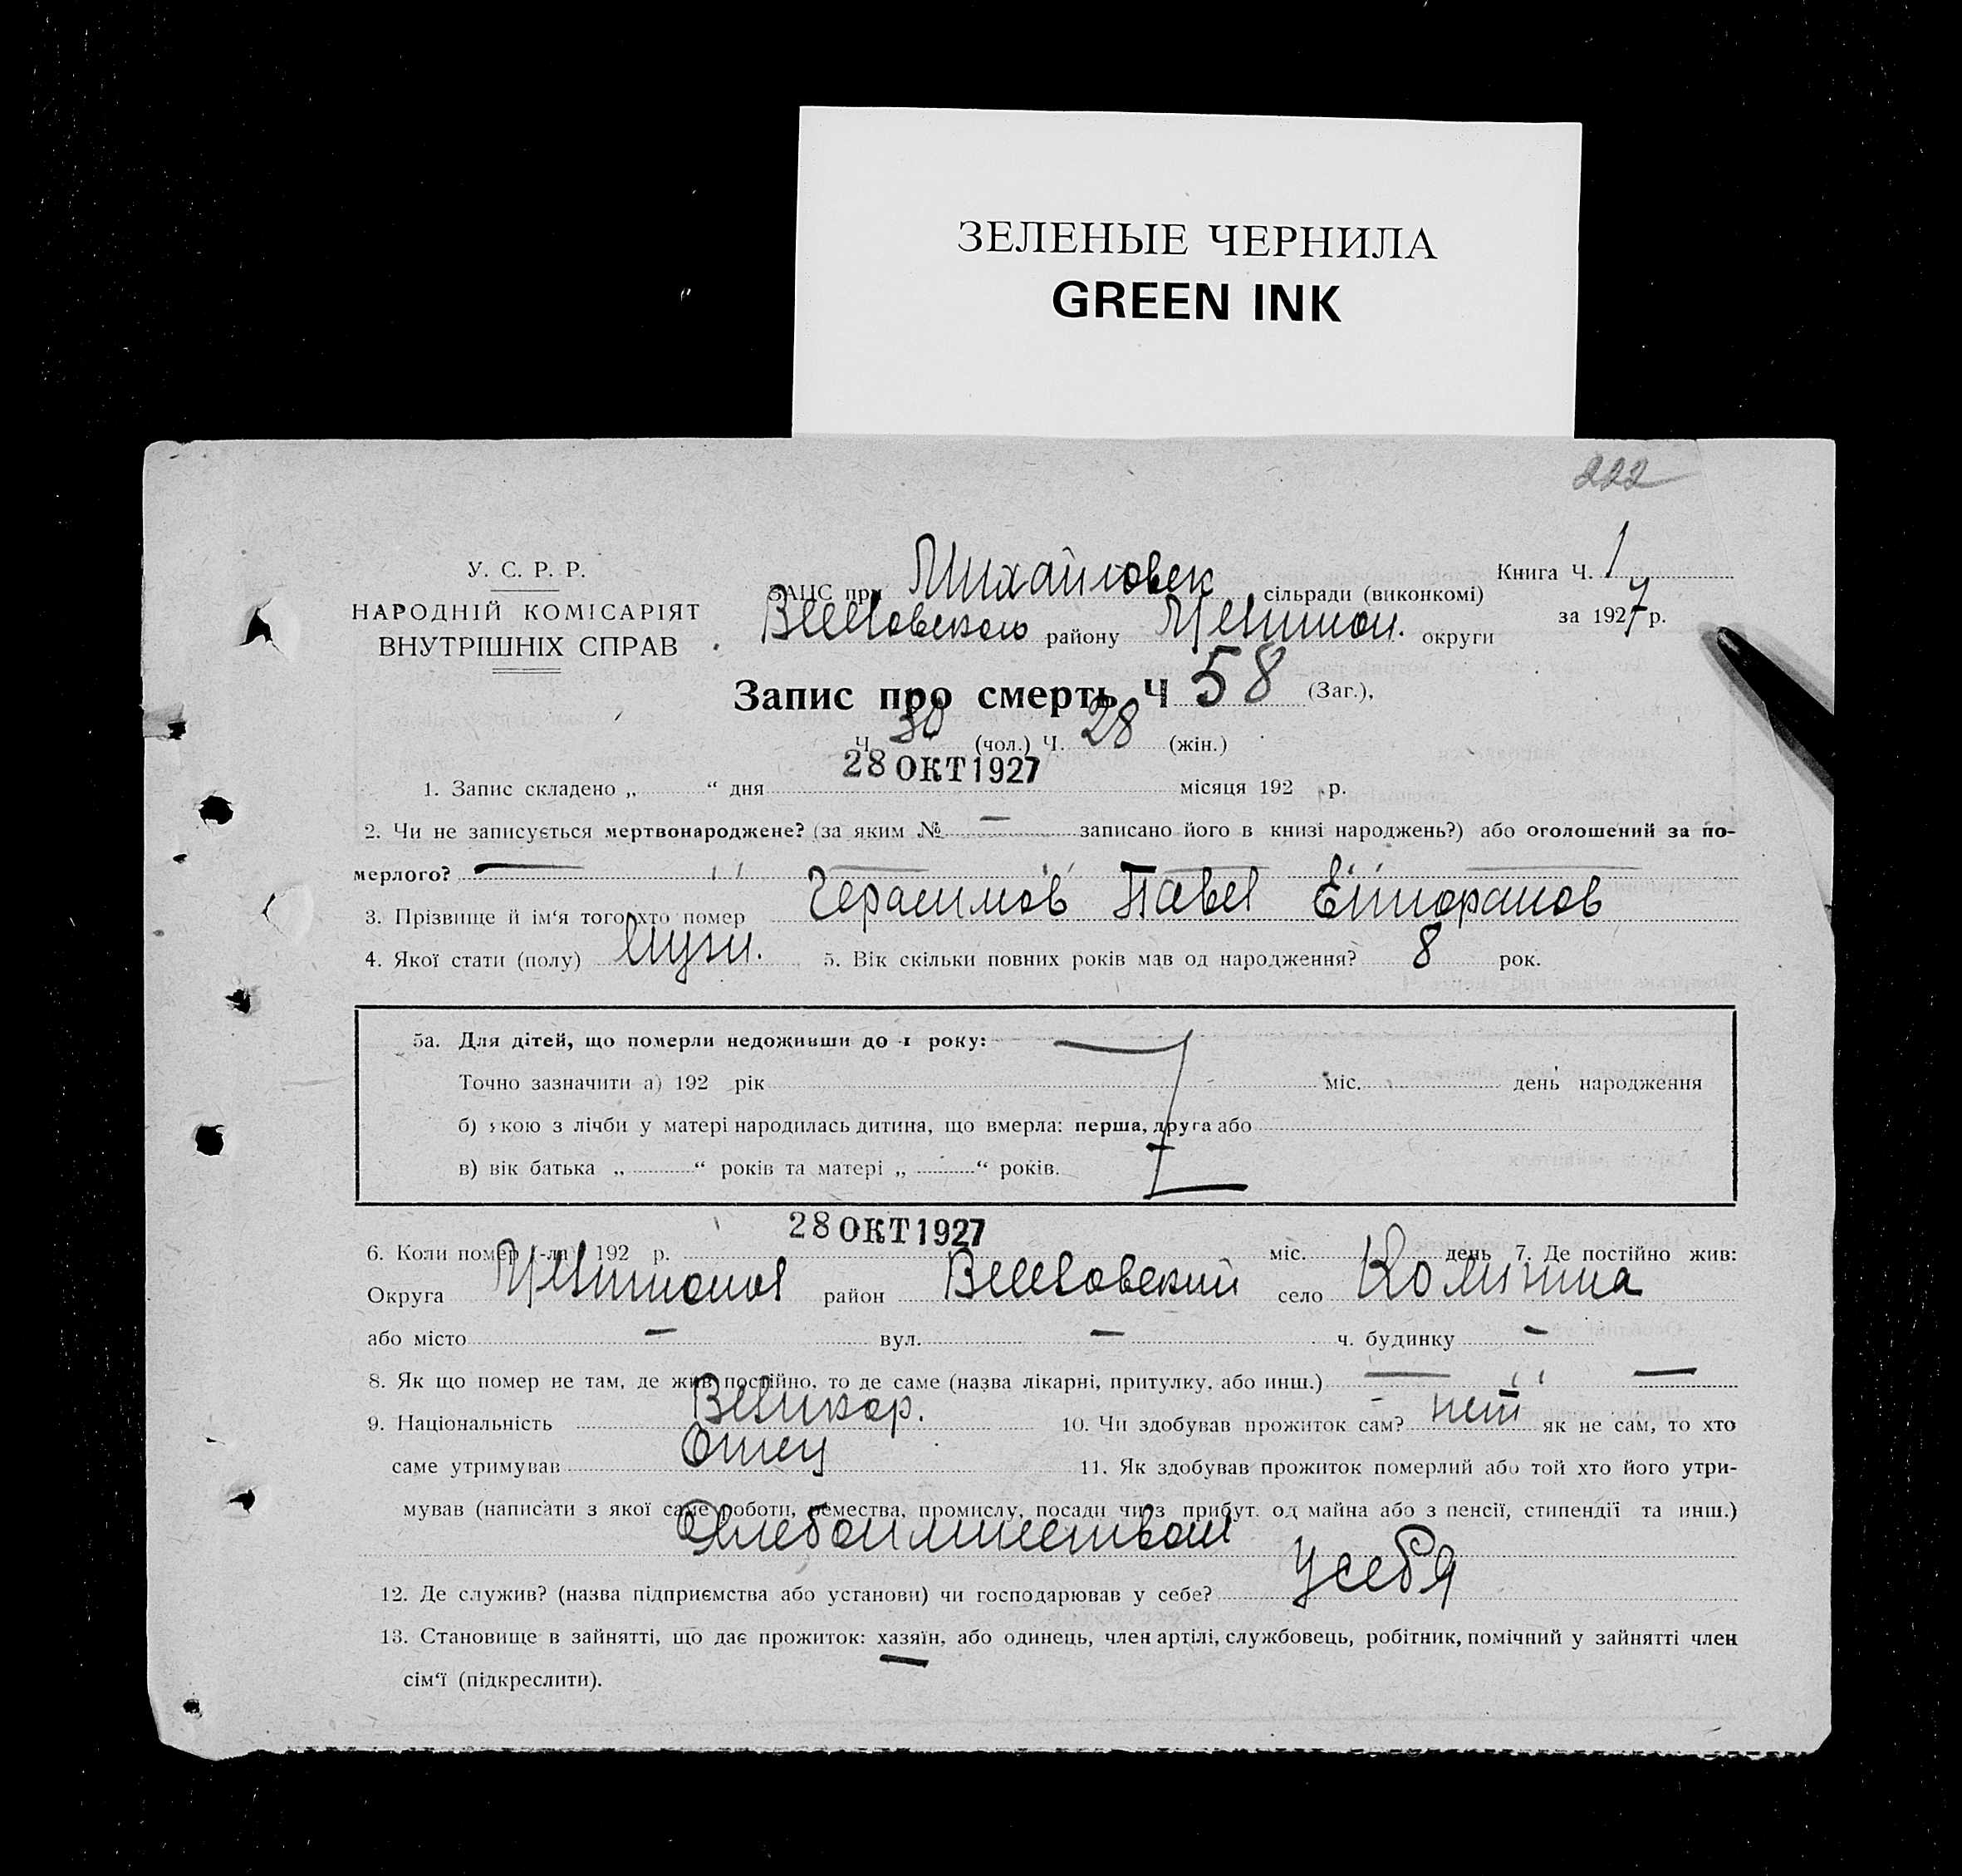 ЗЕЛЕНЫЕ ЧЕРНИЛА
GREEN INK
222
У. С. Р. Р.
НАРОДНІЙ КОМІСАРІЯТ
ВНУТРІШНІХ СПРАВ
ЗАГС при Михайловск сільради (виконкомі)
району округи
Книга Ч. 1
за 1927 р.
Запис про смерть Ч 58 (Заг.),
Ч. 30 (чол.) Ч. 28 (жін.)
28 ОКТ 1927
1. Запис складено „ “ дня місяця 192 р.
2. Чи не записується мертвонароджене? (за яким № — записано його в книзі народжень?) або оголошений за по-
мерлого? —
3. Прізвище й ім‘я того хто помер Герасимов Павел
4. Якої стати (полу) муж. 5. Вік скільки повних років мав од народження? 8 рок.
5а. Для дітей, що померли недоживши до 1 року:
Точно зазначити а) 192 рік міс. день народження
б) якою з лічби у матері народилась дитина, що вмерла: перша, друга або
в) вік батька „ “ років та матері „ “ років.
28 ОКТ 1927
6. Коли помер (-ла) 192 р. міс. день 7. Де постійно жив:
Округа район село
або місто — вул. — ч. будинку —
8. Як що помер не там, де жив постійно, то де саме (назва лікарні, притулку, або инш.) — —
9. Національність Великор. 10. Чи здобував прожиток сам? нет як не сам, то хто
саме утримував Отец 11. Як здобував прожиток померлий або той хто його утри-
мував (написати з якої саме роботи, ремества, промислу, посади чи з прибут. од майна або з пенсії, стипендії та инш.)
12. Де служив? (назва підприємства або установи) чи господарював у себе? У себя
13. Становище в зайнятті, що дає прожиток: хазяїн, або одинець, член артілі, службовець, робітник, помічний у зайнятті член
сім‘ї (підкреслити).